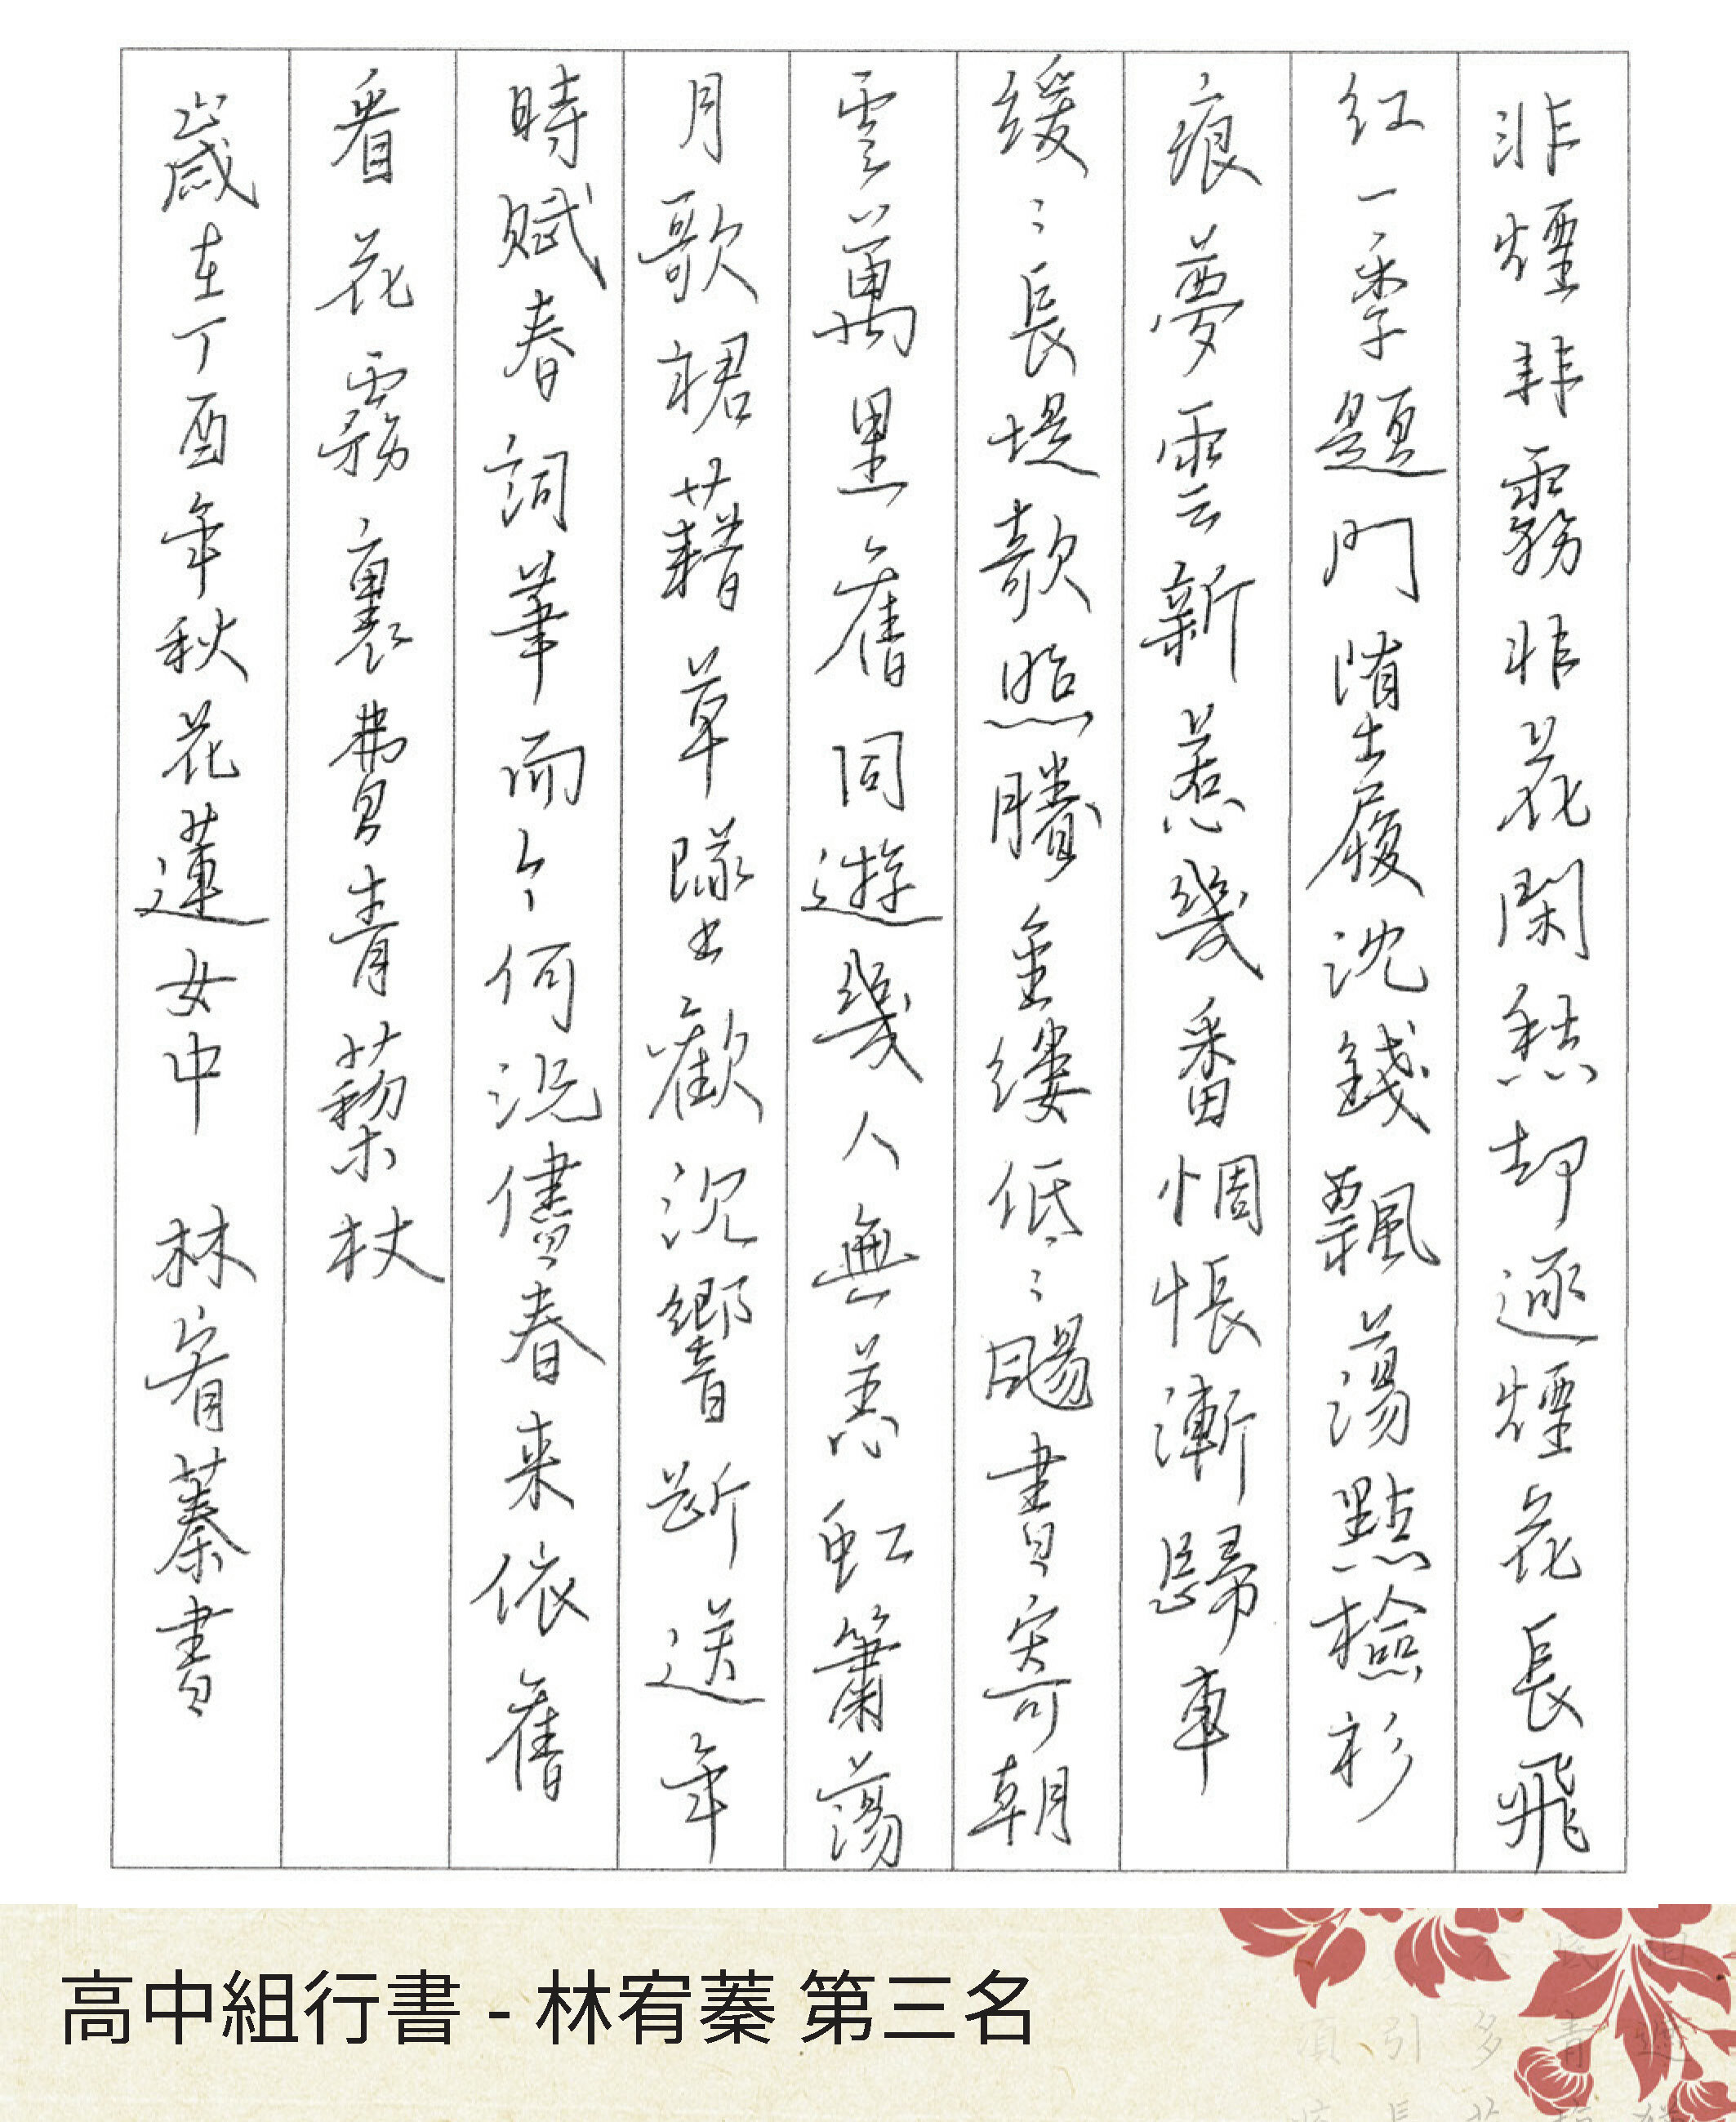 非煙非霧非花閑愁却逐煙花長飛
紅一季題門墮履沈錢飄蕩點檢衫
痕夢雲新惹幾番惆悵漸歸車
緩〻長堤欹照賸金縷低〻颺書寄朝
雲萬里舊同遊幾人無恙虹簫蕩
月歌裙藉草墜歡沈響斷送年
時賦春詞筆而今何況儘春来依舊
看花霧裏費青藜杖
歲在丁酉年秋花蓮女中 林宥蓁書
高中組行書 - 林宥蓁 第三名